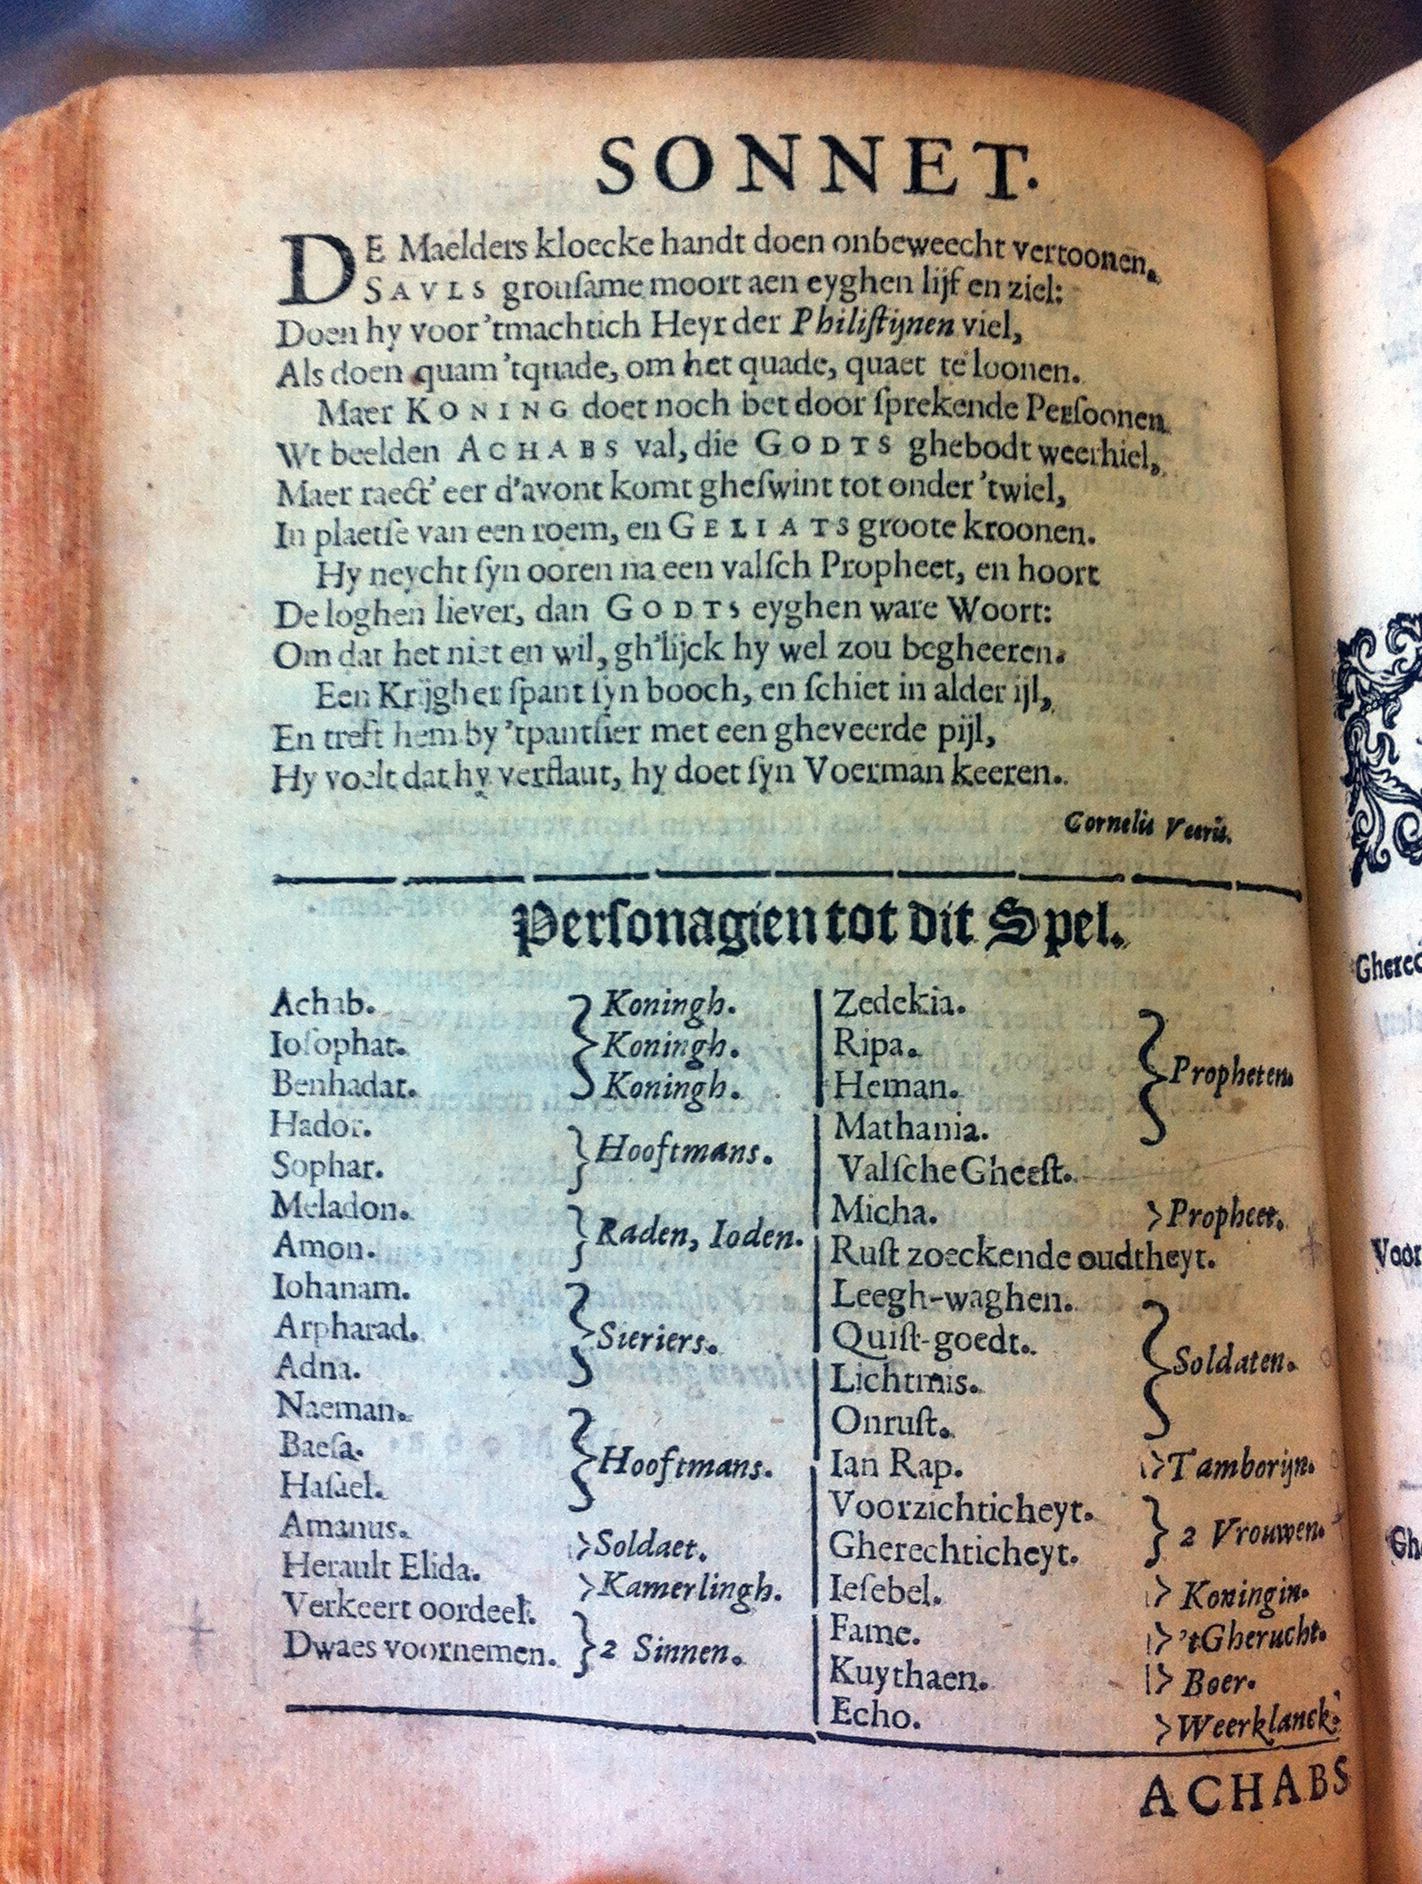 SONNET.
DE Maelders kloecke handt doen onbeweecht vertoonen,
SAVLS grouſame moort aen eyghen lijf en ziel:
Doen hy voor 'tmachtich Heyr der Philiſtijnen viel,
Als doen quam 'tquade, om het quade, quaet te loonen.
Maer KONING doet noch bet door ſprekende Perſoonen
Wt beelden ACHABS val, die GODTS ghebodt weerhiel,
Maer raect' eer d'avont komt gheſwint tot onder 'twiel,
In plaetſe van een roem, en GELIATS groote kroonen.
Hy neycht ſyn ooren na een valſch Propheet, en hoort
De loghen liever, dan GODTS eyghen ware Woort:
Om dat het niet en wil, gh'lijck hy wel zou begheeren.
Een Krijgher ſpant ſyn booch, en ſchiet in alder ijl,
En treft hem by 'tpantſier met een gheveerde pijl,
Hy voelt dat hy verflaut, hy doet ſyn Voerman keeren.
Cornelis Veeris.
Perſonagien tot dit Spel.
Achab. Koningh.
Ioſophat. Koningh.
Benhadat. Koningh.
Hador.
Sophar. Hooftmans.
Meladon.
Amon. Raden, Ioden.
Iohanam.
Arpharad. Sieriers.
Adna.
Naeman.
Baeſa. Hooftmans.
Haſael.
Amanus. Soldaet.
Herault Elida. Kamerlingh.
Verkeert oordeel.
Dwaes voornemen. 2 Sinnen.
Zedekia.
Ripa.
Heman. Propheten.
Mathania.
Valſche Gheeſt.
Micha. Propheet.
Ruſt zoeckende oudtheyt.
Leegh-waghen.
Quiſt-goedt. Soldaten.
Lichtmis.
Onruſt.
Ian Rap. Tamborijn.
Voorzichticheyt.
Gherechticheyt. 2 Vrouwen.
Ieſebel. Koningin.
Fame. 'tGherucht.
Kuythaen. Boer.
Echo. Weerklanck.
ACHABS
Voor